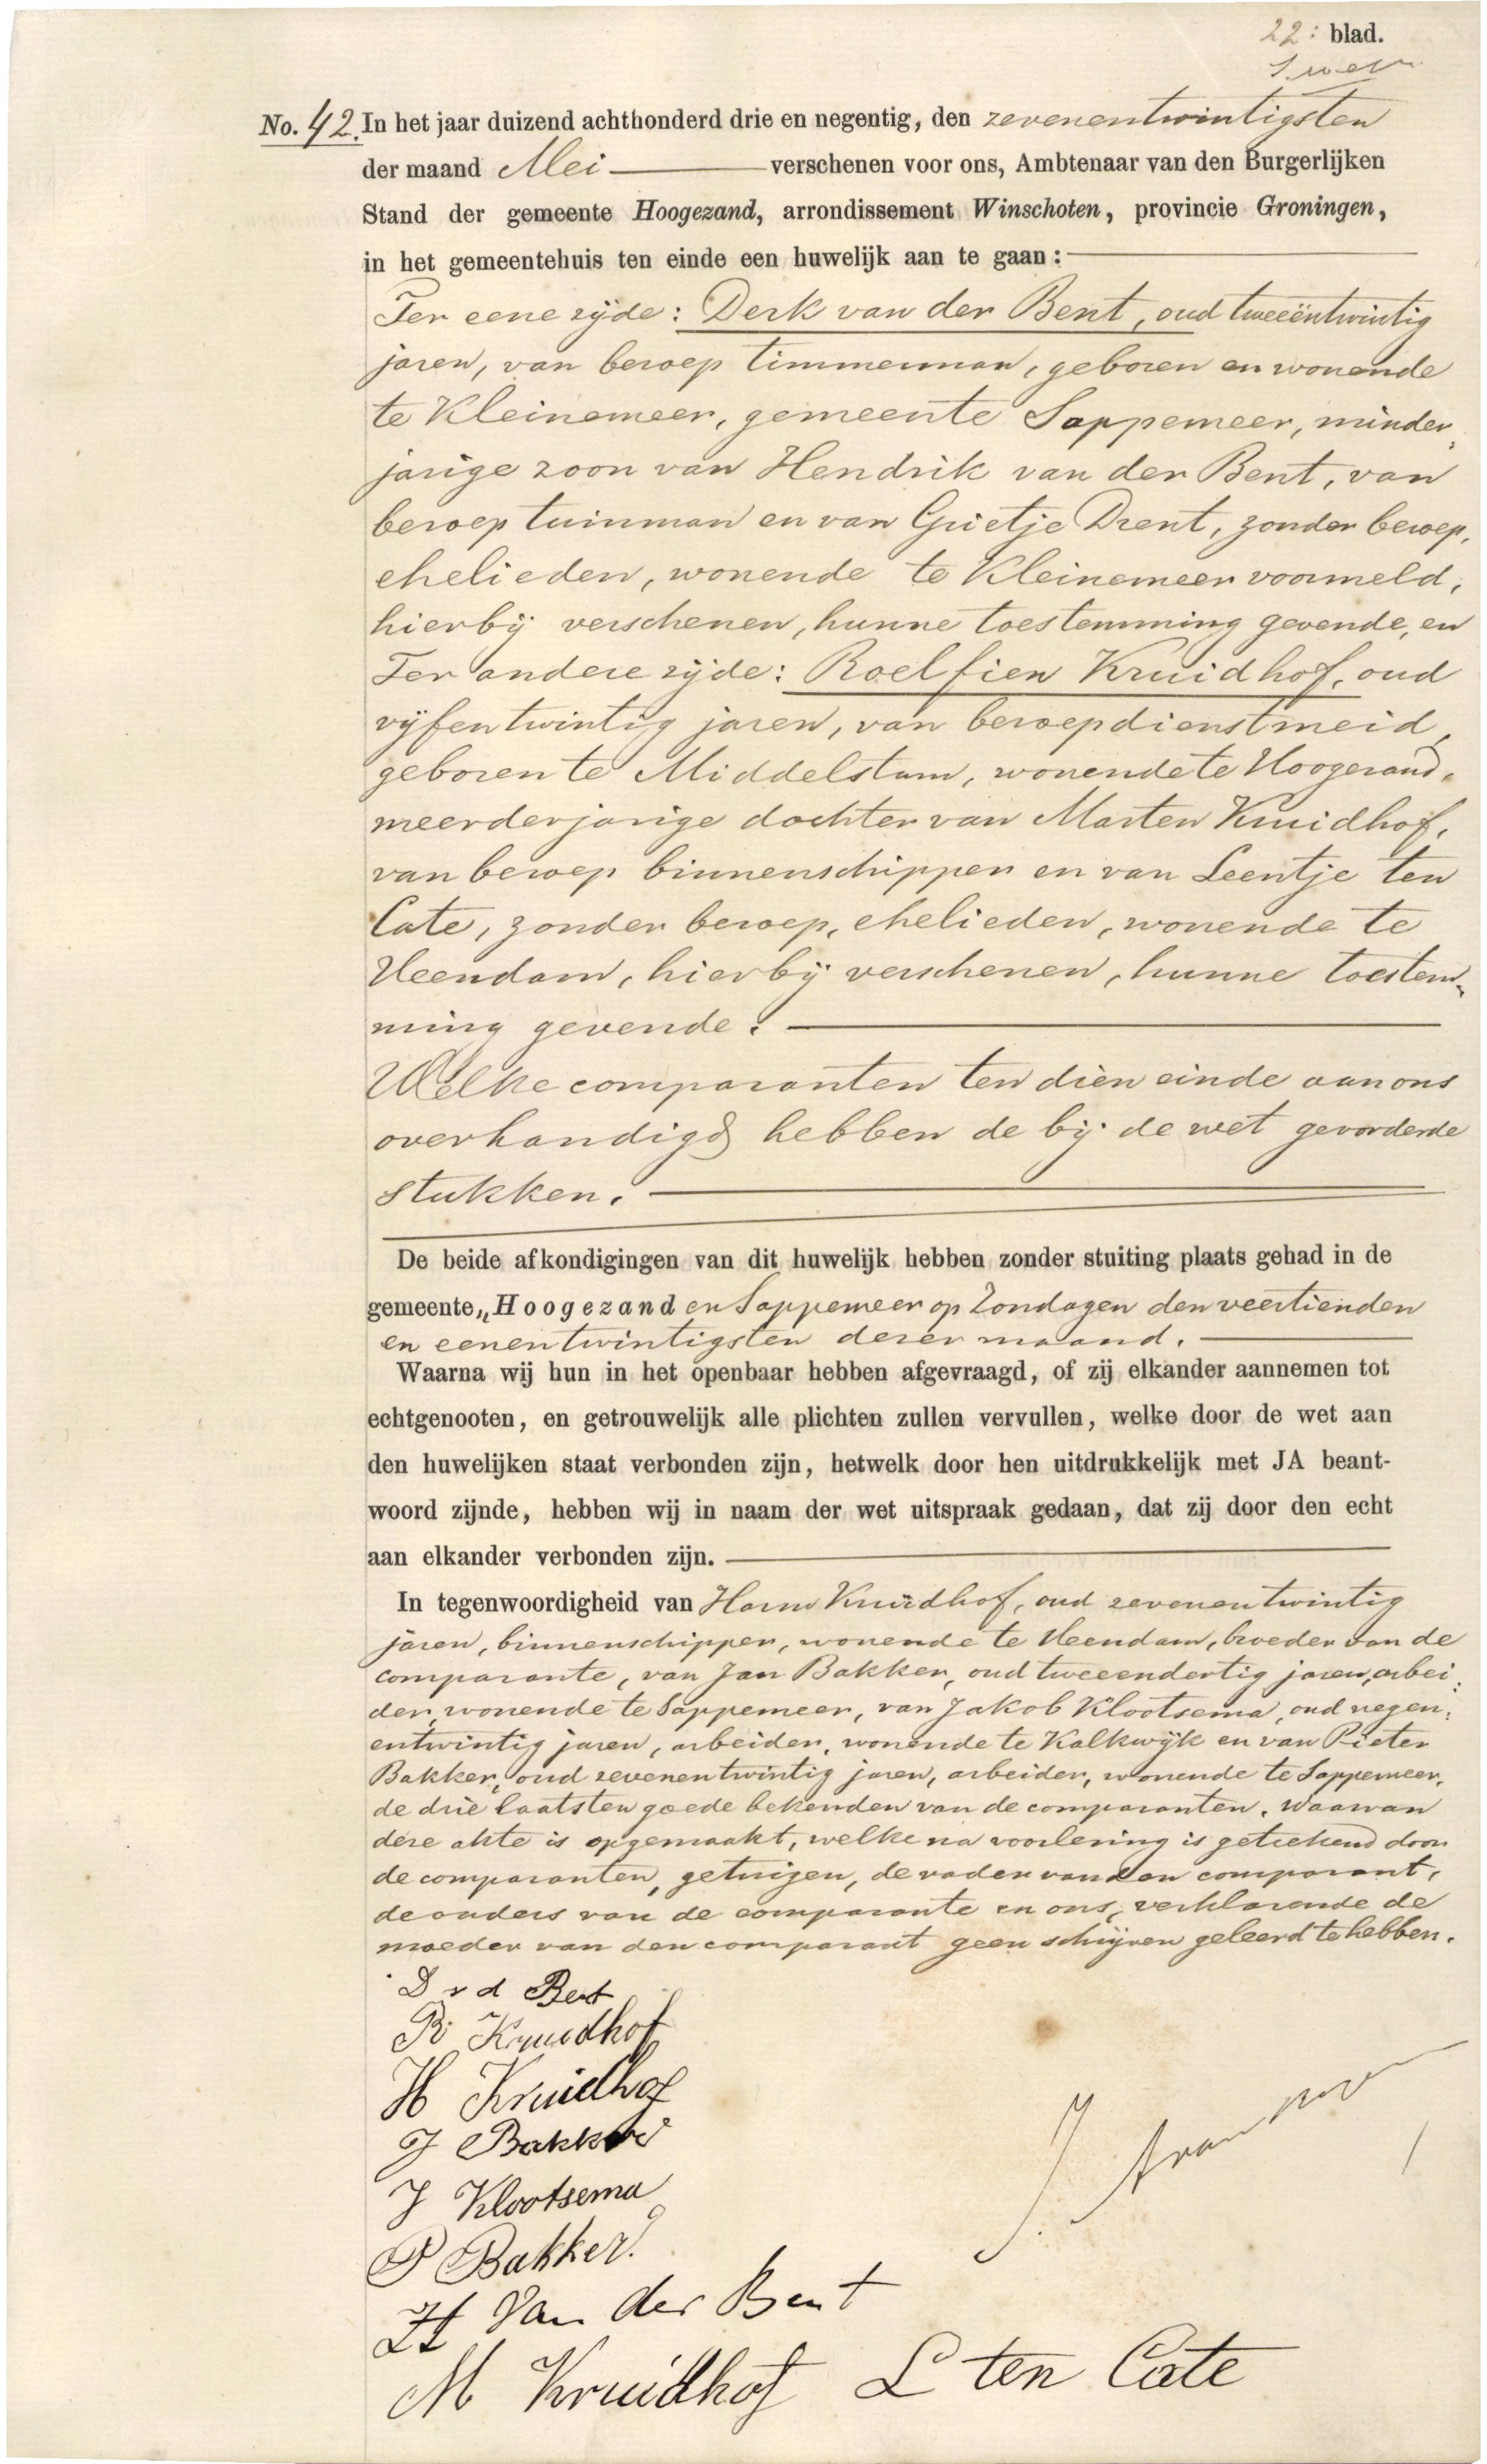 22: blad.
No. 42. In het jaar duizend achthonderd drie en negentig, den zevenentwintigsten
der maand Mei verschenen voor ons, Ambtenaar van den Burgerlijken
Stand der gemeente Hoogezand, arrondissement Winschoten, provincie Groningen,
in het gemeentehuis ten einde een huwelijk aan te gaan:
Ter eene zijde: Derk van der Bent, oud tweeëntwintig
jaren, van beroep timmerman, geboren en wonende
te Kleinemeer, gemeente Sappemeer, minder„
jarige zoon van Hendrik van der Bent, van
beroep tuinman en van Grietje Drent, zonder beroep,
ehelieden, wonende te Kleinemeer voormeld,
hierbij verschenen, hunne toestemming gevende, en
Ter andere zijde: Roelfien Kruidhof, oud
vijfentwintig jaren, van beroep dienstmeid,
geboren te Middelstum, wonende te Hoogezand,
meerderjarige dochter van Marten Kruidhof,
van beroep binnenschipper en van Leentje ten
Cate, zonder beroep, ehelieden, wonende te
Veendam, hierbij verschenen, hunne toestem„
ming gevende.
Welke comparanten ten dien einde aan ons
overhandigd hebben de bij de wet gevorderde
stukken.
De beide afkondigingen van dit huwelijk hebben zonder stuiting plaats gehad in de
gemeente„ Hoogezand en Sappemeer op Zondagen den veertienden
en eenentwintigsten dezer maand.
Waarna wij hun in het openbaar hebben afgevraagd, of zij elkander aannemen tot
echtgenooten, en getrouwelijk alle plichten zullen vervullen, welke door de wet aan
den huwelijken staat verbonden zijn, hetwelk door hen uitdrukkelijk met JA beant-
woord zijnde, hebben wij in naam der wet uitspraak gedaan, dat zij door den echt
aan elkander verbonden zijn.
In tegenwoordigheid van Harm Kruidhof, oud zevenentwintig
jaren, binnenschipper, wonende te Veendam, broeder van de
comparante, van Jan Bakker, oud tweeendertig jaren, arbei„
der, wonende te Sappemeer, van Jakob Klootsema, oud negen„
entwintig jaren, arbeider, wonende te Kalkwijk en van Pieter
Bakker, oud zevenentwintig jaren, arbeider, wonende te Sappemeer,
de drie laatsten goede bekenden van de comparanten. Waarvan
deze akte is opgemaakt, welke na voorlezing is geteekend door
de comparanten, getuigen, de vader van den comparant,
de ouders van de comparante en ons, verklarende de
moeder van den comparant geen schrijven geleerd te hebben.
D v d Bent
R Kruidhof
H Kruidhof
J Bakker
J Klootsema
P Bakker
H Van der Bent
M Kruidhof L ten Cate